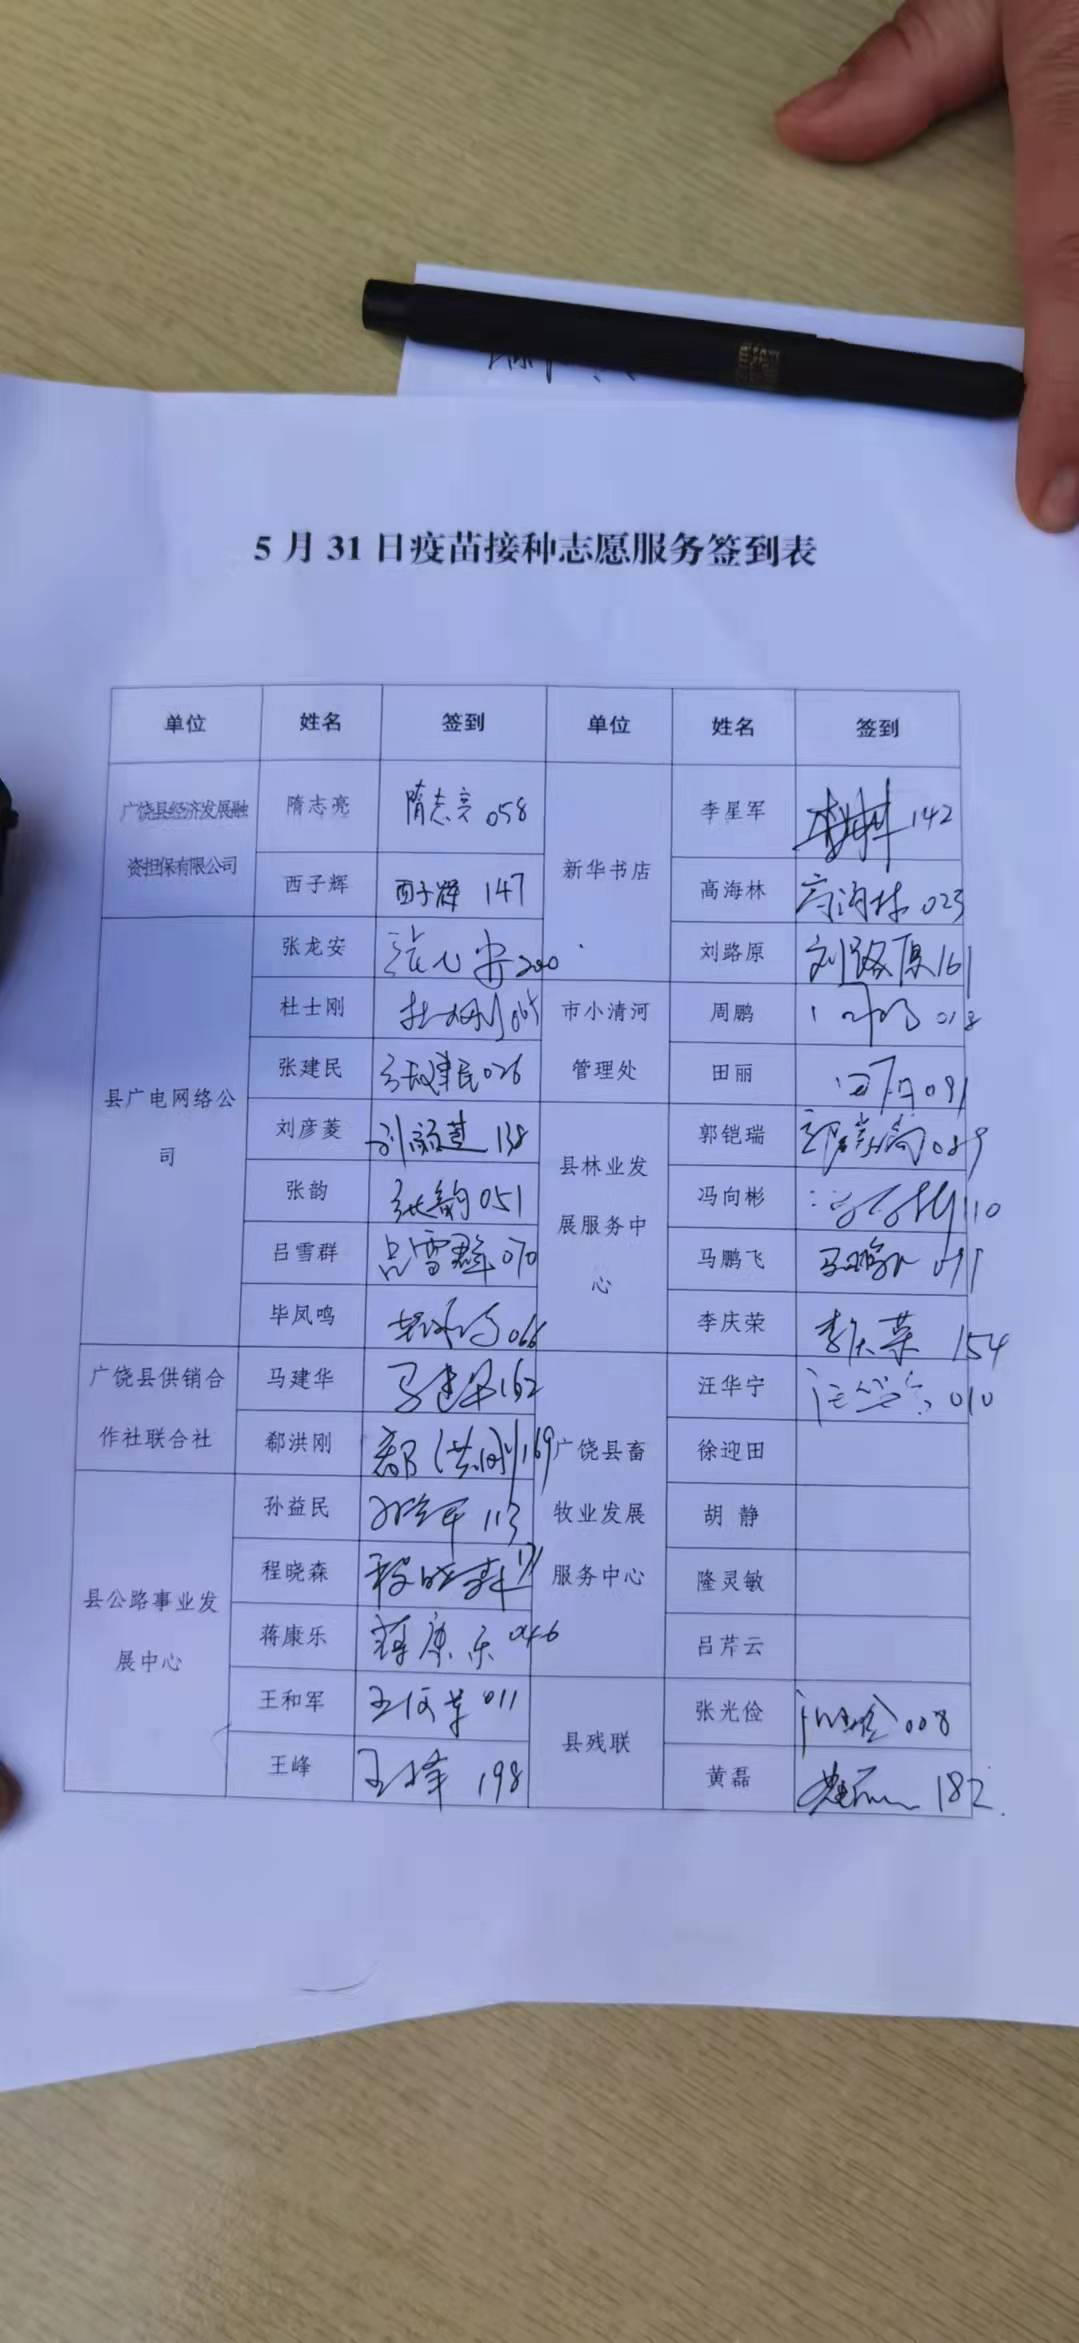 5月31日疫苗接种志愿服务签到表
单位 姓名 签到 单位 姓名 签到
广饶县经济发展融资担保有限公司 隋志亮 隋志亮 058 新华书店 李星军 142
西子辉 西子辉 147 高海林 高海林 023
县广电网络公司 张龙安 张龙安 200 刘路原 刘路原 161
杜士刚 杜士刚 065 市小清河管理处 周鹏 周鹏 018
张建民 张建民 026 田丽 田丽 091
刘彦菱 138 县林业发展服务中心 郭铠瑞 089
张韵 张韵 051 冯向彬 冯向彬 110
吕雪群 吕雪群 070 马鹏飞 马鹏飞
毕凤鸣 066 李庆荣 李庆荣 154
广饶县供销合作社联合社 马建华 马建华 162 广饶县畜牧业发展服务中心 汪华宁 汪华宁 010
郗洪刚 郗洪刚 169 徐迎田
县公路事业发展中心 孙益民 113 胡静
程晓森 程晓森 171 隆灵敏
蒋康乐 蒋康乐 046 吕芹云
王和军 王和军 011 县残联 张光俭 张光俭 008
王峰 王峰 198 黄磊 黄磊 182